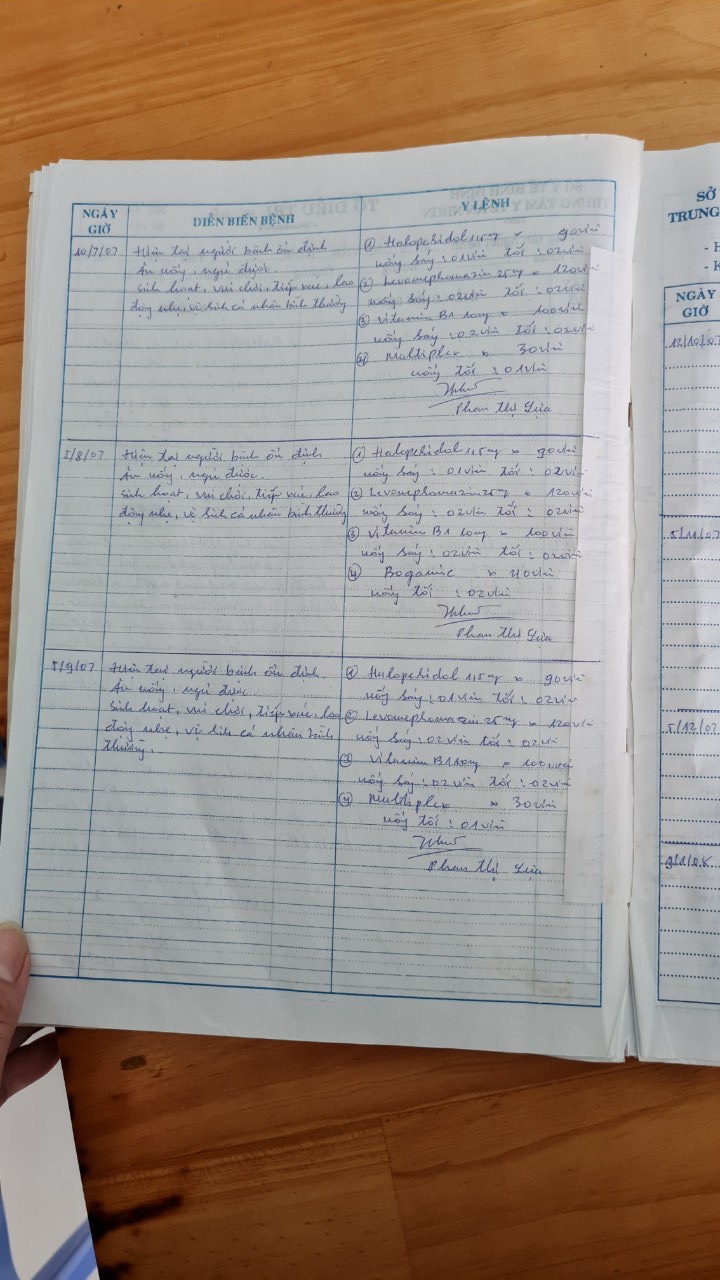 NGÀY GIỜ
DIỄN BIẾN BỆNH
Y LỆNH
10/7/07
Hiện tại người bệnh ổn định
Ăn uống, ngủ được
sinh hoạt, vui chơi, tiếp xúc, lao
động nhẹ, vệ sinh cá nhân bình thường
① Halopehidol 1,5mg x 90 viên
uống sáng : 01 viên tối : 02 viên
② Levomephomazin 25mg x 120 viên
uống sáng : 02 viên tối : 02 viên
③ Vitamin B1 10mg x 100 viên
uống sáng : 02 viên tối : 02 viên
④ Multiplex x 30 viên
uống tối : 01 viên
Phan Thị Lựu
5/8/07
Hiện tại người bệnh ổn định
Ăn uống, ngủ được.
sinh hoạt, vui chơi, tiếp xúc, lao
động nhẹ, vệ sinh cá nhân bình thường
① Halopehidol 1,5mg x 90 viên
uống sáng : 01 viên tối : 02 viên
② Levomephomazin 25mg x 120 viên
uống sáng : 02 viên tối : 02 viên
③ Vitamin B1 10mg x 100 viên
uống sáng : 02 viên tối : 02 viên
④ Boganic x 40 viên
uống tối : 02 viên
Phan Thị Lựu
5/9/07
Hiện tại người bệnh ổn định.
Ăn uống, ngủ được.
Sinh hoạt, vui chơi, tiếp xúc, lao
động nhẹ, vệ sinh cá nhân bình
thường.
① Halopehidol 1,5mg x 90 viên
uống sáng : 01 viên tối : 02 viên
② Levomephomazin 25mg x 120 viên
uống sáng : 02 viên tối : 02 viên
③ Vitamin B1 10mg x 100 viên
uống sáng : 02 viên tối : 02 viên
④ Multiplex x 30 viên
uống tối : 01 viên
Phan Thị Lựu
SỞ
TRUNG
- H
- K
NGÀY GIỜ
12/10/07
5/11/07
5/12/07
9/1/08